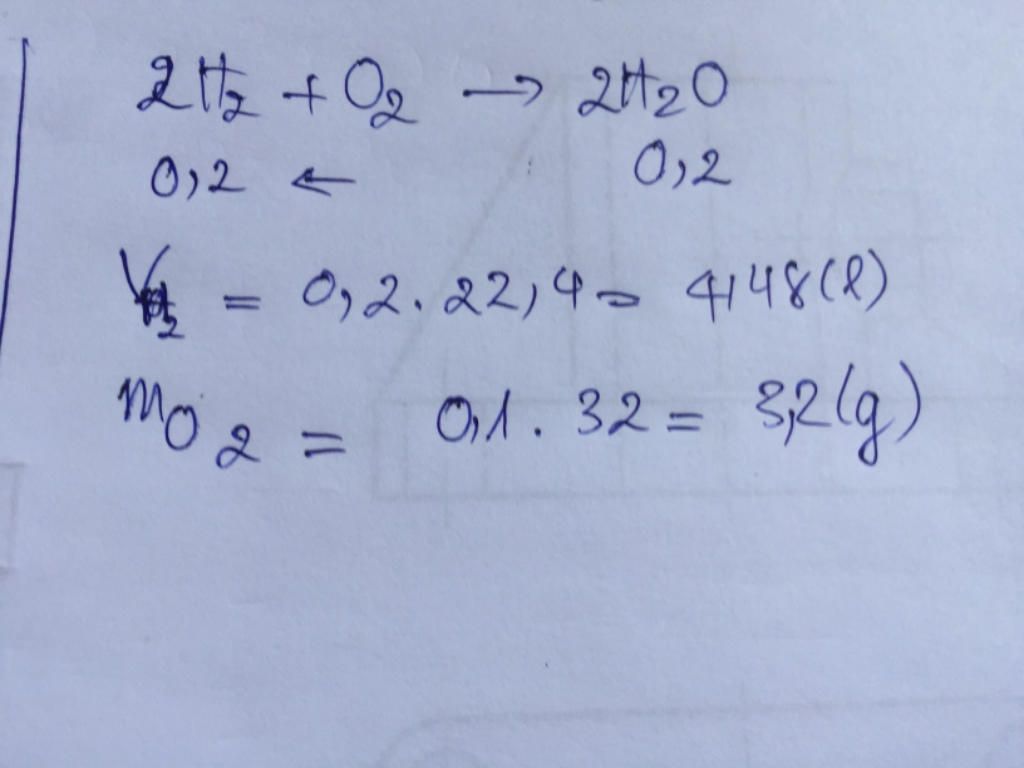 2H₂ + O₂ → 2H₂O
0,2 ← 0,2
V_H₂ = 0,2 . 22,4 = 4,48 (l)
m_O₂ = 0,1 . 32 = 3,2 (g)